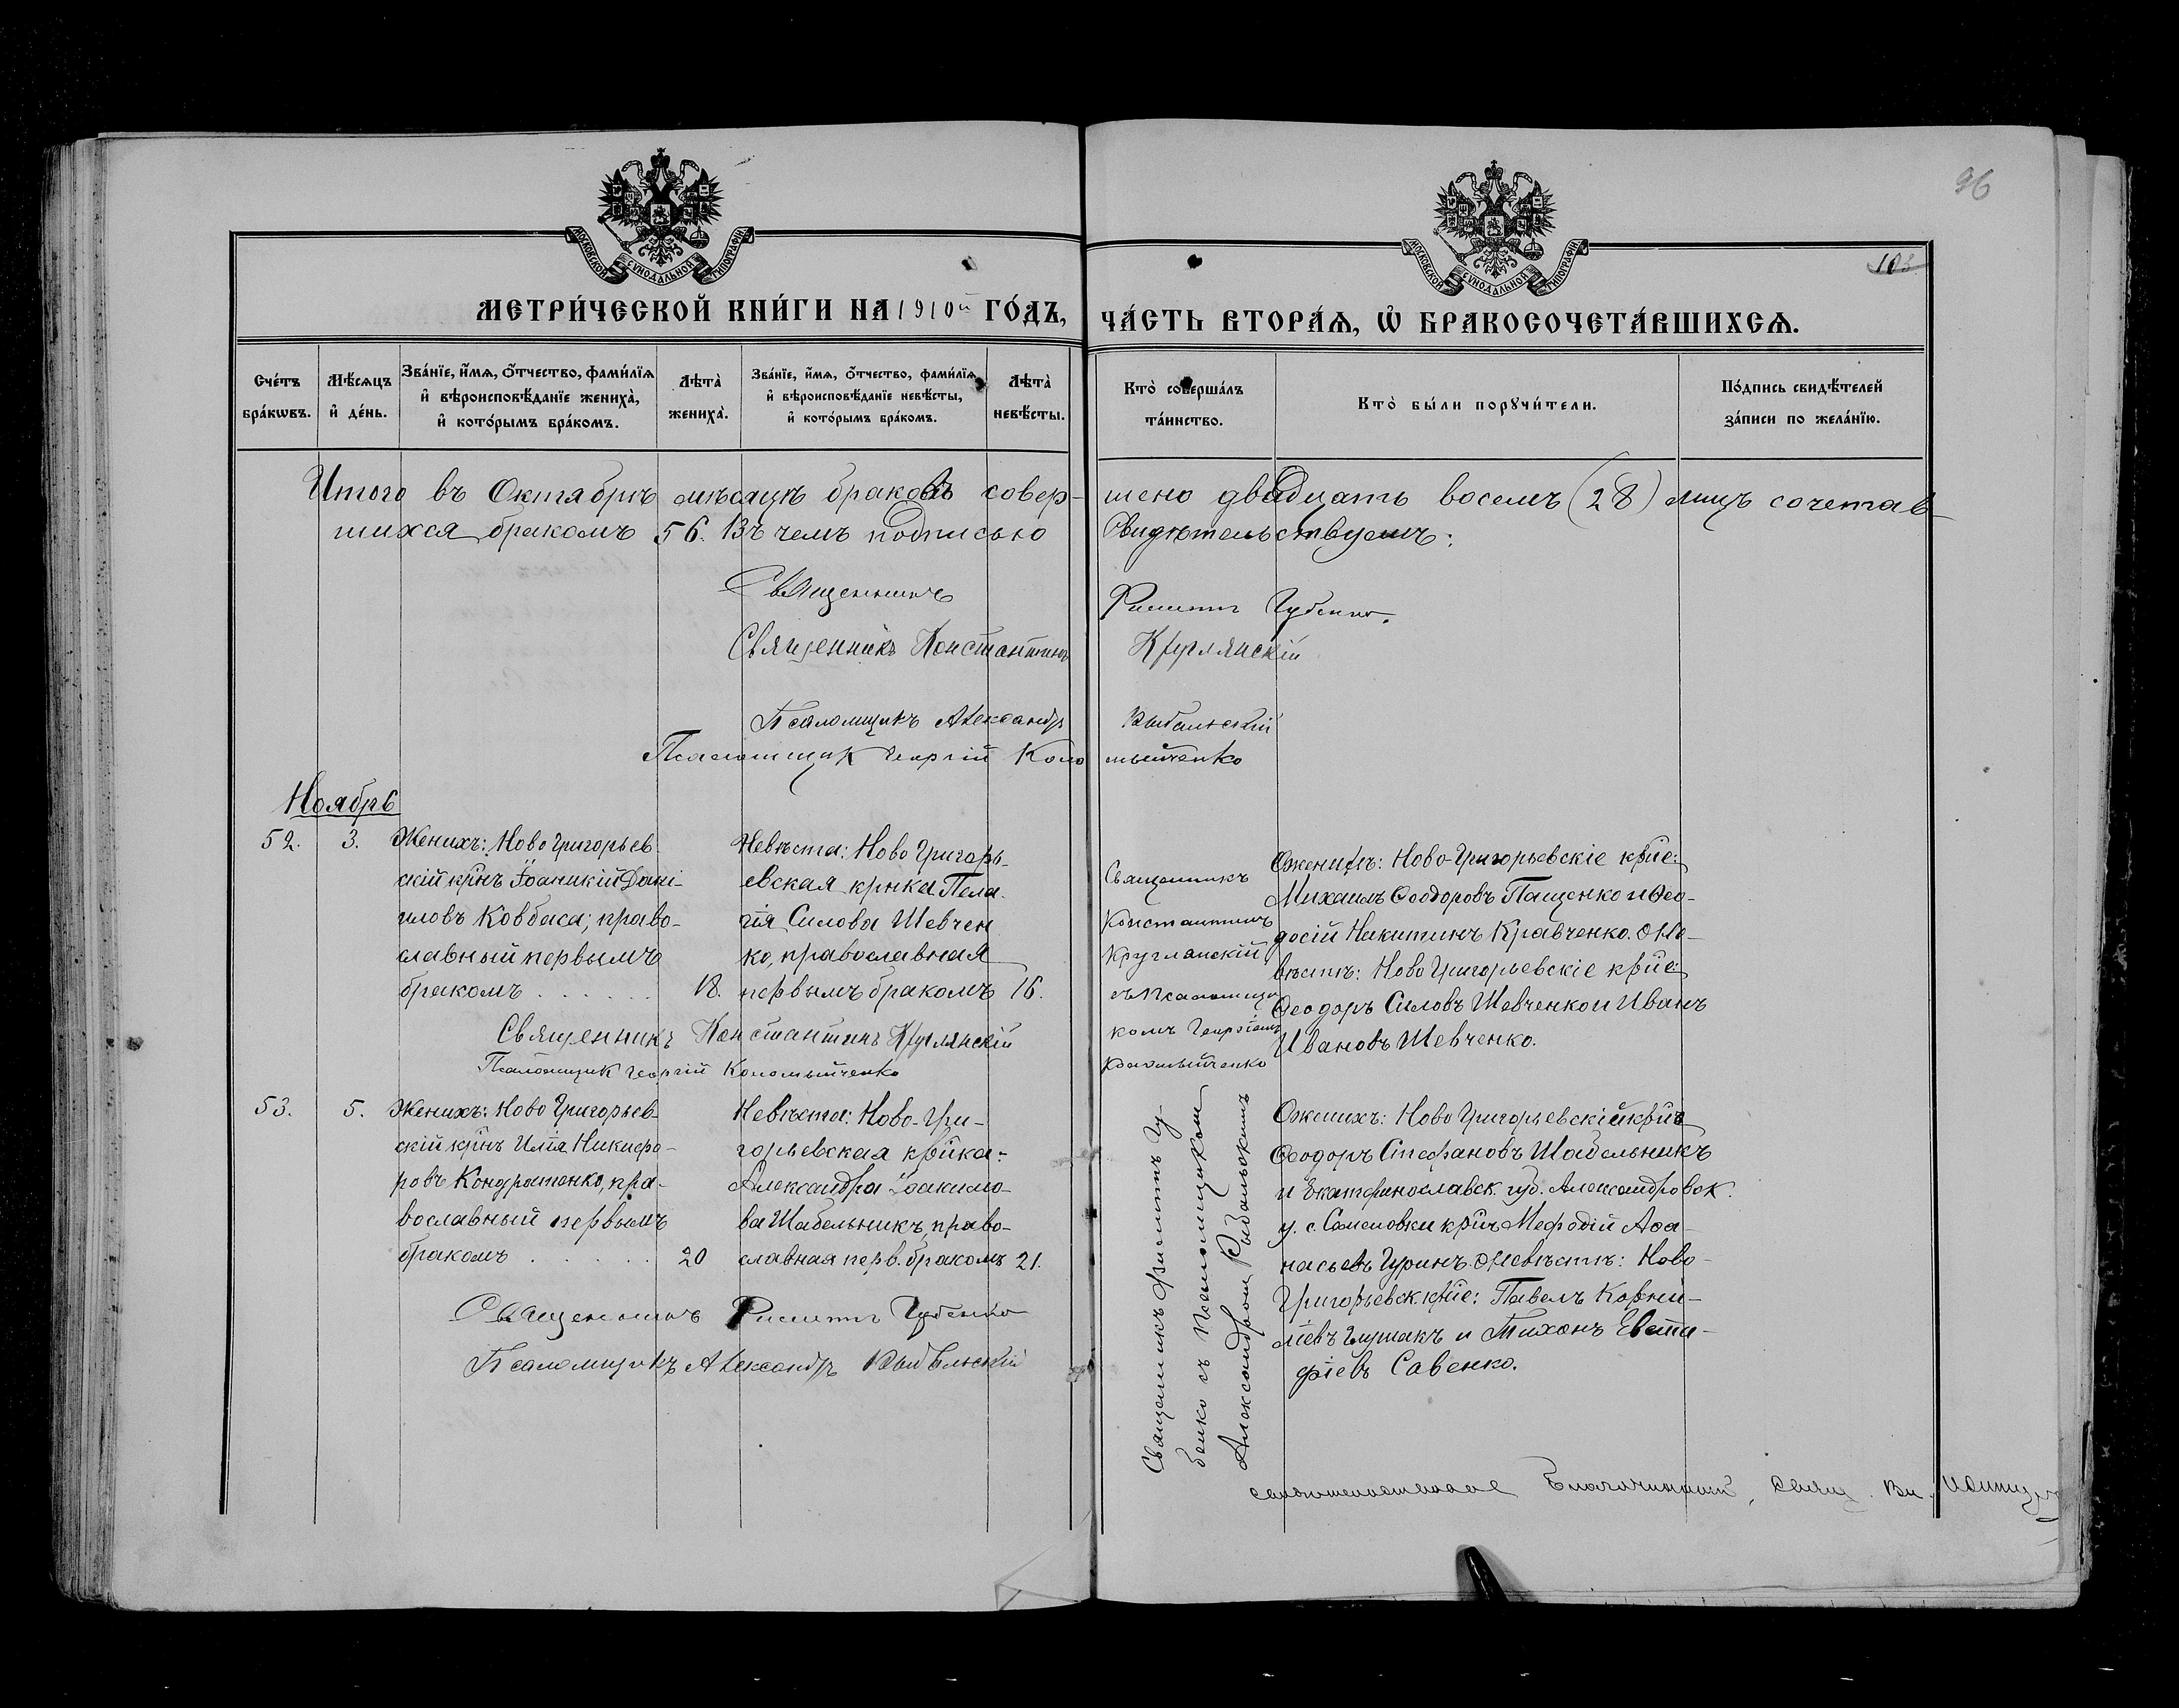 96
103
МОСКОВСКОЙ СѴНОДАЛЬНОЙ ТИПОГРАФІИ
МОСКОВСКОЙ СѴНОДАЛЬНОЙ ТИПОГРАФІИ
МЕТРИ́ЧЕСКОЙ КНИ́ГИ НА 1910й ГО́ДЪ,
ЧА́СТЬ ВТОРА́Ѧ, Ѡ҆ БРАКОСОЧЕТА́ВШИХСѦ.
Сче́тъ
бра́кѡвъ.
Мѣ́сѧцъ
и҆ де́нь.
Зва́нїе, и҆́мѧ, ѻ҆́тчество, фами́лїѧ
и҆ вѣроисповѣ́данїе жениха̀,
и҆ кото́рымъ бра́комъ.
Лѣ́та̀
жениха̀.
Зва́нїе, и҆́мѧ, ѻ҆́тчество, фами́лїѧ
и҆ вѣроисповѣ́данїе невѣ́сты,
и҆ кото́рымъ бра́комъ.
Лѣ́та̀
невѣ́сты.
Кто̀ соверша́лъ
та́инство.
Кто̀ бы́ли порꙋчи́тели.
По́дпись свидѣ́телей
за́писи по жела́нїю.
Итого въ Октябрѣ мѣсяцѣ браковъ совер-
шено двадцать восемъ (28) лицъ сочетав-
шихся бракомъ 56. Въ чемъ подписью
свидѣтельствуемъ:
Священникъ Филиппъ Губенко.
Священникъ Константинъ Круглянскій
Псаломщикъ Александръ
Псаломщикъ Георгій Коломыйченко
Ноябрь
52. 3.
Женихъ: Ново Григорьев-
скій крнъ Іоаникій Дані-
иловъ Ковбаса; право-
славный первымъ
бракомъ . . . . . . 18.
Невѣста: Ново Григорь-
евская крнка Пела-
гія Силова Шевчен
ко, православная
первымъ бракомъ 16.
Священникъ
Константинъ
Круглянскій
съ псаломщи
комъ Георгіемъ
Коломыйченко
Ѳ женихѣ: Ново-Григорьевскіе крйе:
Михаилъ Ѳеодоровъ Пащенко и Ѳео-
досій Никитинъ Кравченко. О Не-
вѣстѣ: Ново Григорьевскіе крйе:
Ѳеодоръ Силовъ Шевченко и Иванъ
Ивановъ Шевченко.
Священникъ Константинъ Круглянскій
Псаломщикъ Георгій Коломыйченко
53. 5.
Женихъ: Ново Григорьев-
скій крнъ Илія Никифо-
ровъ Кондратенко, пра-
вославный первымъ
бракомъ . . . . . . 20
Невѣста: Ново-Гри-
горьевская крйка:
Александра Іоакимо-
ва Шабельникъ, право-
славная перв. бракомъ 21.
Священникъ Филиппъ Гу-
бенко съ псаломщикомъ
Александромъ
О женихѣ: Ново Григорьевскій крйъ
Ѳеодоръ Стефановъ Шабельникъ
и Екатеринославск. губ. Александровск.
у. с. Семеновки крйъ Мефодій Аѳа-
насьевъ Гуринъ. О Невѣстѣ: Ново-
Григорьевск. крйе: Павелъ Корни-
ліевъ Глушакъ и Тихонъ Евста-
фіевъ Савенко.
Священникъ Филиппъ Губенко
Псаломщикъ Александръ
Благочинный, свящ. Вл.